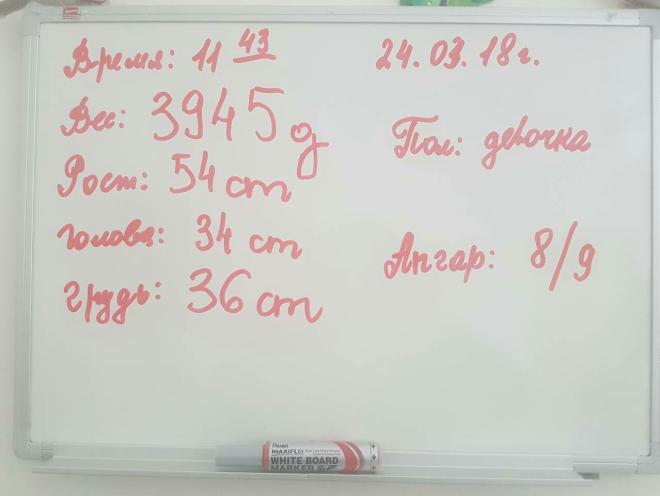 Время: 11 43
24.03.18г.
Вес: 3945 g
Пол: девочка
Рост: 54 cm
голова: 34 cm
Апгар: 8/9
грудь: 36 cm
Pentel
MAXIFLO
WHITE BOARD
MARKER